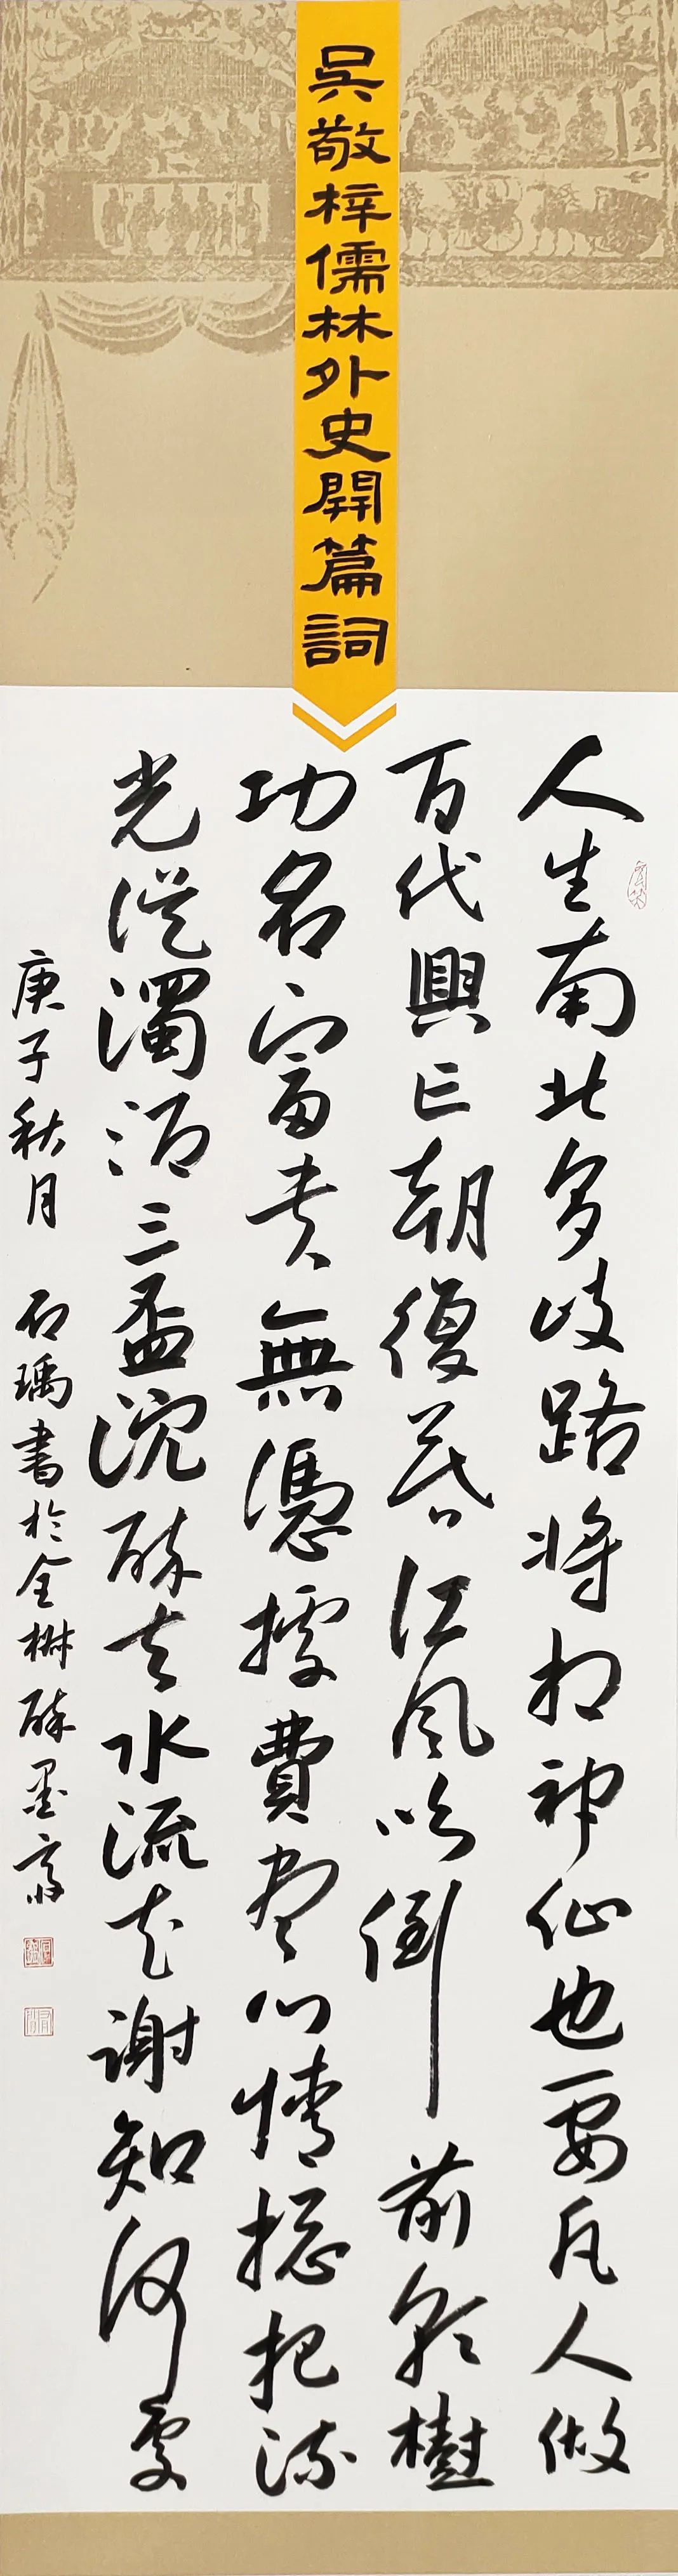 吳敬梓儒林外史開篇詞
人生南北多歧路將相神仙也要凡人做
百代興亡朝復暮江風吹倒前朝樹
功名富貴無憑據費盡心情總把流
光誤濁酒三盃沉醉去水流花謝知何處
庚子秋月 石瑀書於全椒醉墨齋